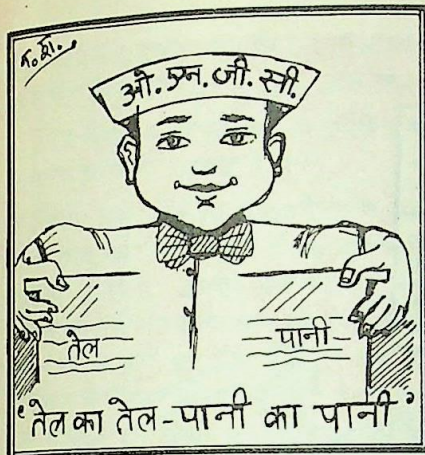 न. ह्रा.
ओ. एन. जी. सी.
तेल
पानी
'तेल का तेल - पानी का पानी'